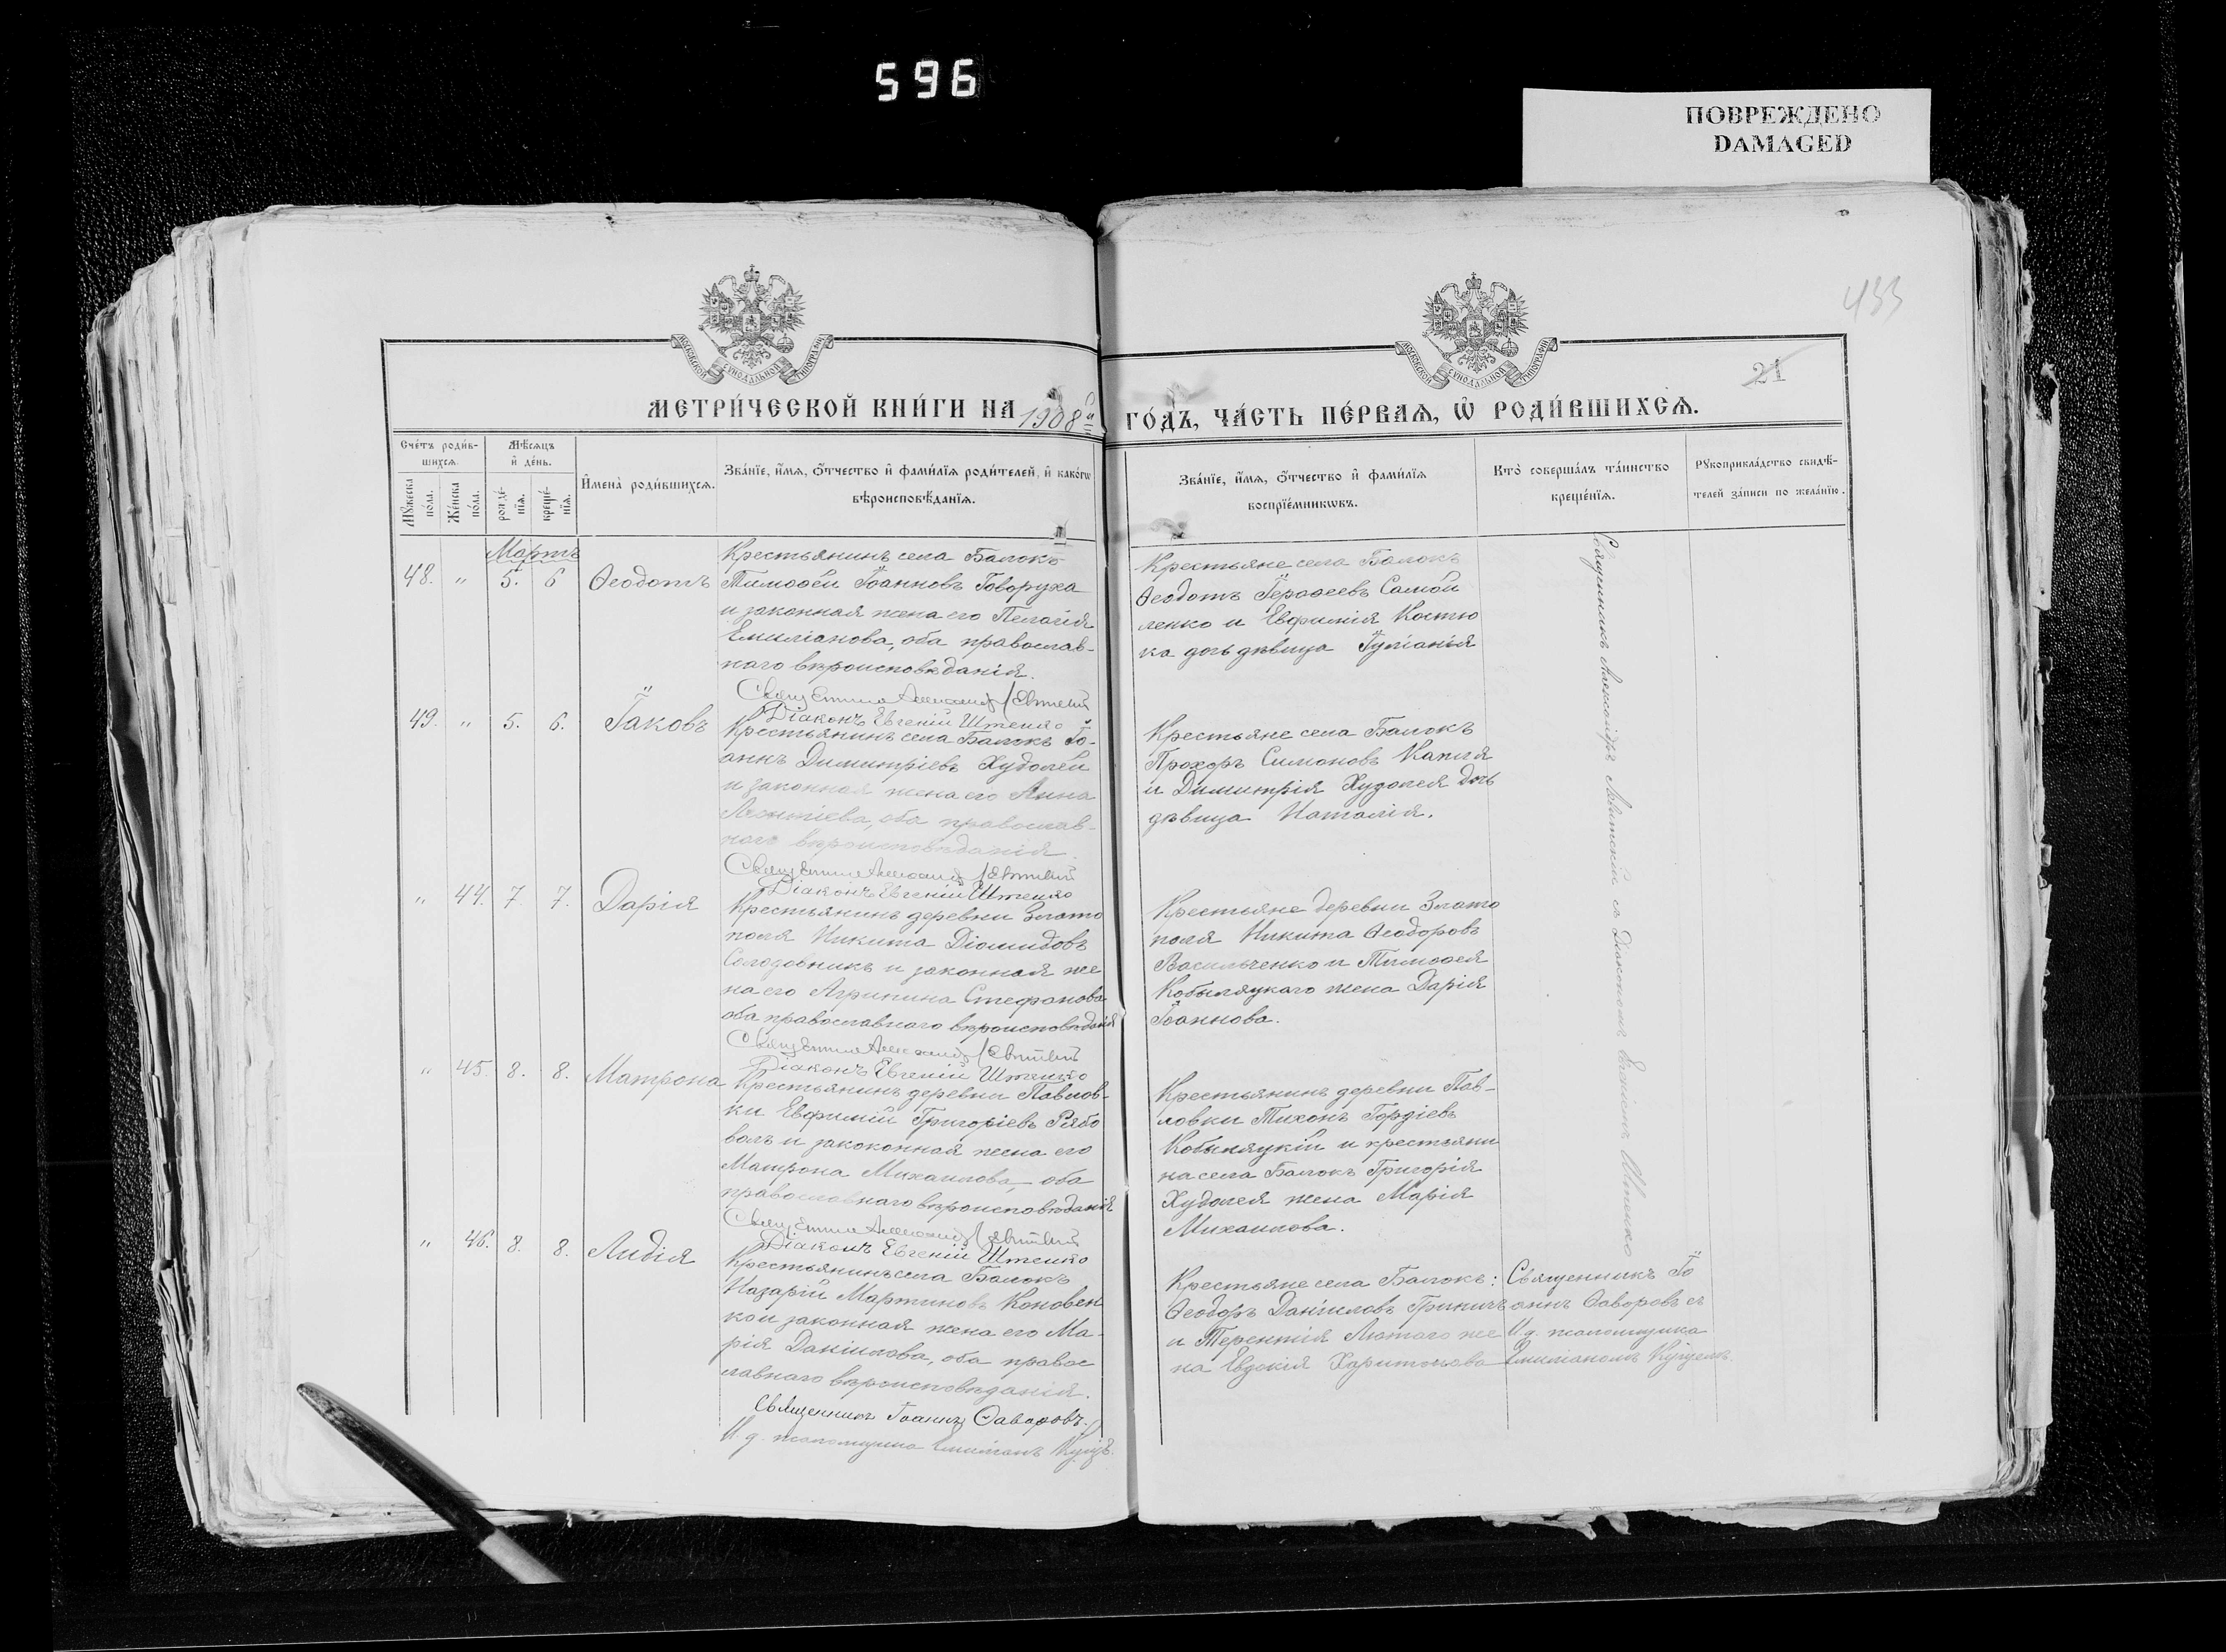 596
ПОВРЕЖДЕНО
DAMAGED
433
21
МЕТРИ́ЧЕСКОЙ КНИ́ГИ НА 1908й
ГО́ДЪ, ЧА́СТЬ ПЕ́РВАѦ, Ѡ҆ РОДИ́ВШИХСѦ.
Сче́тъ роди́в-
шихсѧ.
Мꙋ́жеска по́ла.
Же́нска по́ла.
Мѣ́сѧцъ
и҆ де́нь.
рожде́-нїѧ.
креще́-нїѧ.
И҆мена̀ роди́вшихсѧ.
Зва́нїе, и҆́мѧ, ѻ҆́тчество и҆ фами́лїѧ роди́телей, и҆ како́гѡ
вѣроисповѣ́данїѧ.
Зва́нїе, и҆́мѧ, ѻ҆́тчество и҆ фами́лїѧ
воспрїе́мникѡвъ.
Кто̀ соверша́лъ та́инство
креще́нїѧ.
Рꙋкоприкла́дство свидѣ́-
телей за́писи по жела́нїю.
Мартъ
48. " 5. 6 Ѳеодотъ
Крестьянинъ села Балокъ
Тимоѳей Іоанновъ Говоруха
и законная жена его Пелагія
Емиліанова, оба православ-
наго вѣроисповѣданія.
Діаконъ Евгеній Штепко
Крестьяне села Балокъ
Ѳеодотъ Героѳеевъ Самой
ленко и Евфимія Костю
ка дочь дѣвица Іуліанія
49. " 5. 6. Іаковъ
Крестьянинъ села Балокъ Іо-
аннъ Димитріевъ Худолей
и законная жена его Анна
Леонтіева, оба православ-
наго вѣроисповѣданія.
Діаконъ Евгеній Штепко
Крестьяне села Балокъ
Прохоръ Симоновъ Капля
и Димитрія Худолея дочь
дѣвица Наталія.
" 44. 7. 7. Дарія
Крестьянинъ деревни Злато
поля Никита Діомидовъ
Солодовникъ и законная же
на его Агрипина Стефанова
оба православнаго вѣроисповѣданія
Діаконъ Евгеній Штепко
Крестьяне деревни Злато
поля Никита Ѳеодоровъ
Васильченко и Тимоѳея
Кобыляцкаго жена Дарія
Іоаннова.
" 45. 8. 8. Матрона
Крестьянинъ деревни Павлов-
ки Евфимій Григоріевъ Рябо
волъ и закоконная жена его
Матрона Михаилова, оба
православнаго вѣроисповѣданія
Діаконъ Евгеній Штепко
Крестьянинъ деревни Пав-
ловки Тихонъ Гордіевъ
Кобыляцкій и крестьяни
на села Балокъ Григорія
Худолея жена Марія
Михаилова.
" 46. 8. 8. Лидія
Крестьянинъ села Балокъ
Назарій Мартиновъ Коновен
ко и законная жена его Ма-
рія Даніилова, оба правос
лавнаго вѣроисповѣданія.
Священникъ Іоаннъ Ѳаворовъ.
И. д. псаломщика Емиліанъ
Крестьяне села Балокъ:
Ѳеодоръ Даніиловъ
и Терентія Лютаго же
на Евдокія Харитонова
Священникъ Іо
аннъ Ѳаворовъ съ
И. д. псаломщика
Емиліаномъ
Священникъ Александръ съ Діакономъ Евгеніемъ Штепко